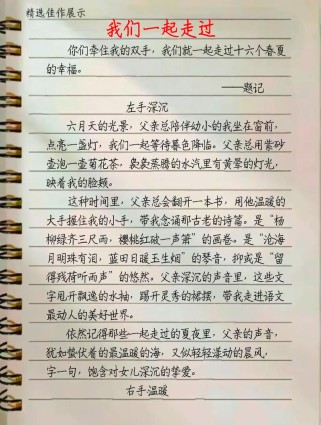 精选佳作展示
我们一起走过
你们牵住我的双手，我们就一起走过十六个春夏
的幸福。
——题记
左手深沉
六月天的光景，父亲总陪伴幼小的我坐在窗前，
点亮一盏灯，我们一起等待暮色降临。父亲总用紫砂
壶泡一壶菊花茶，袅袅蒸腾的水汽里有黄晕的灯光，
映着我的脸颊。
这种时间里，父亲总会翻开一本书，用他温暖的
大手握住我的小手，带我念诵那古老的诗篇。是“杨
柳绿齐三尺雨，樱桃红破一声箫”的画卷。是“沧海
月明珠有泪，蓝田日暖玉生烟”的琴音，抑或是“留
得残荷听雨声”的悠然。父亲深沉的声音里，这些文
字甩开飘逸的水袖，踢开灵秀的裙摆，带我走进语文
最动人的美好世界。
依然记得那些一起走过的夏夜里，父亲的声音，
犹如蛰伏着的最温暖的海，又似轻轻漾动的晨风，
字一句，饱含对女儿深沉的挚爱。
右手温暖